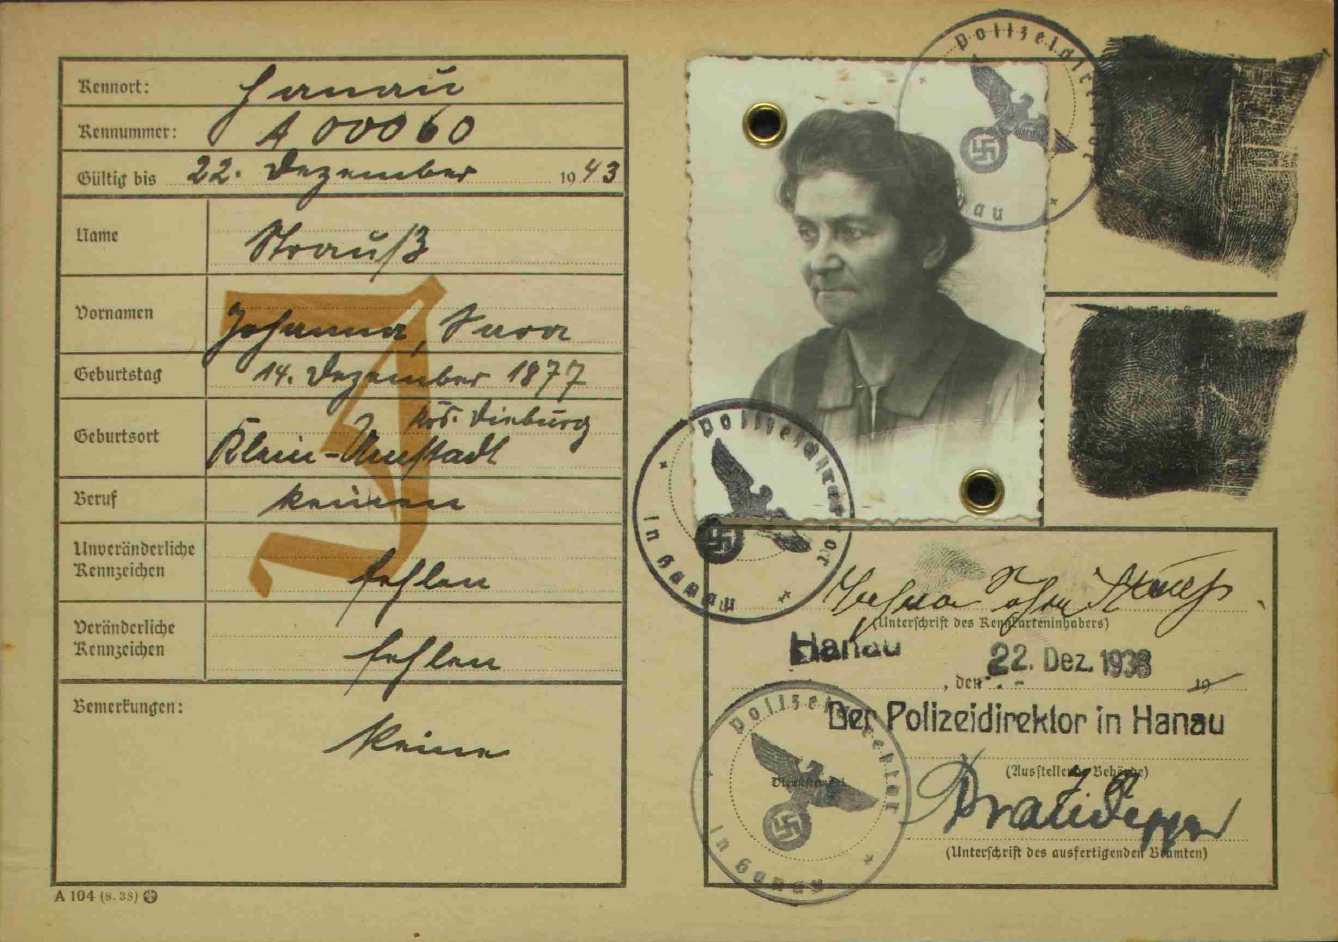 Kennort: Hanau
Kennummer: A 00060
Gültig bis 22. Dezember 1943
Name Strauß
Vornamen Johanna, Sara
Geburtstag 14. Dezember 1877
Geburtsort Krs. Dieburg
Klein-Umstadt
Beruf keinen
Unveränderliche
Kennzeichen fehlen
Veränderliche
Kennzeichen fehlen
Bemerkungen:
keine
J
A 104 (8. 38)
Polizeidirektor
in Hanau
Polizeidirektor
in Hanau
Johanna Sara Strauß
(Unterschrift des Kennkarteninhabers)
Hanau, den 22. Dez. 1938
19
Der Polizeidirektor in Hanau
(Ausstellende Behörde)
Polizeidirektor
in Hanau
(Unterschrift des ausfertigenden Beamten)